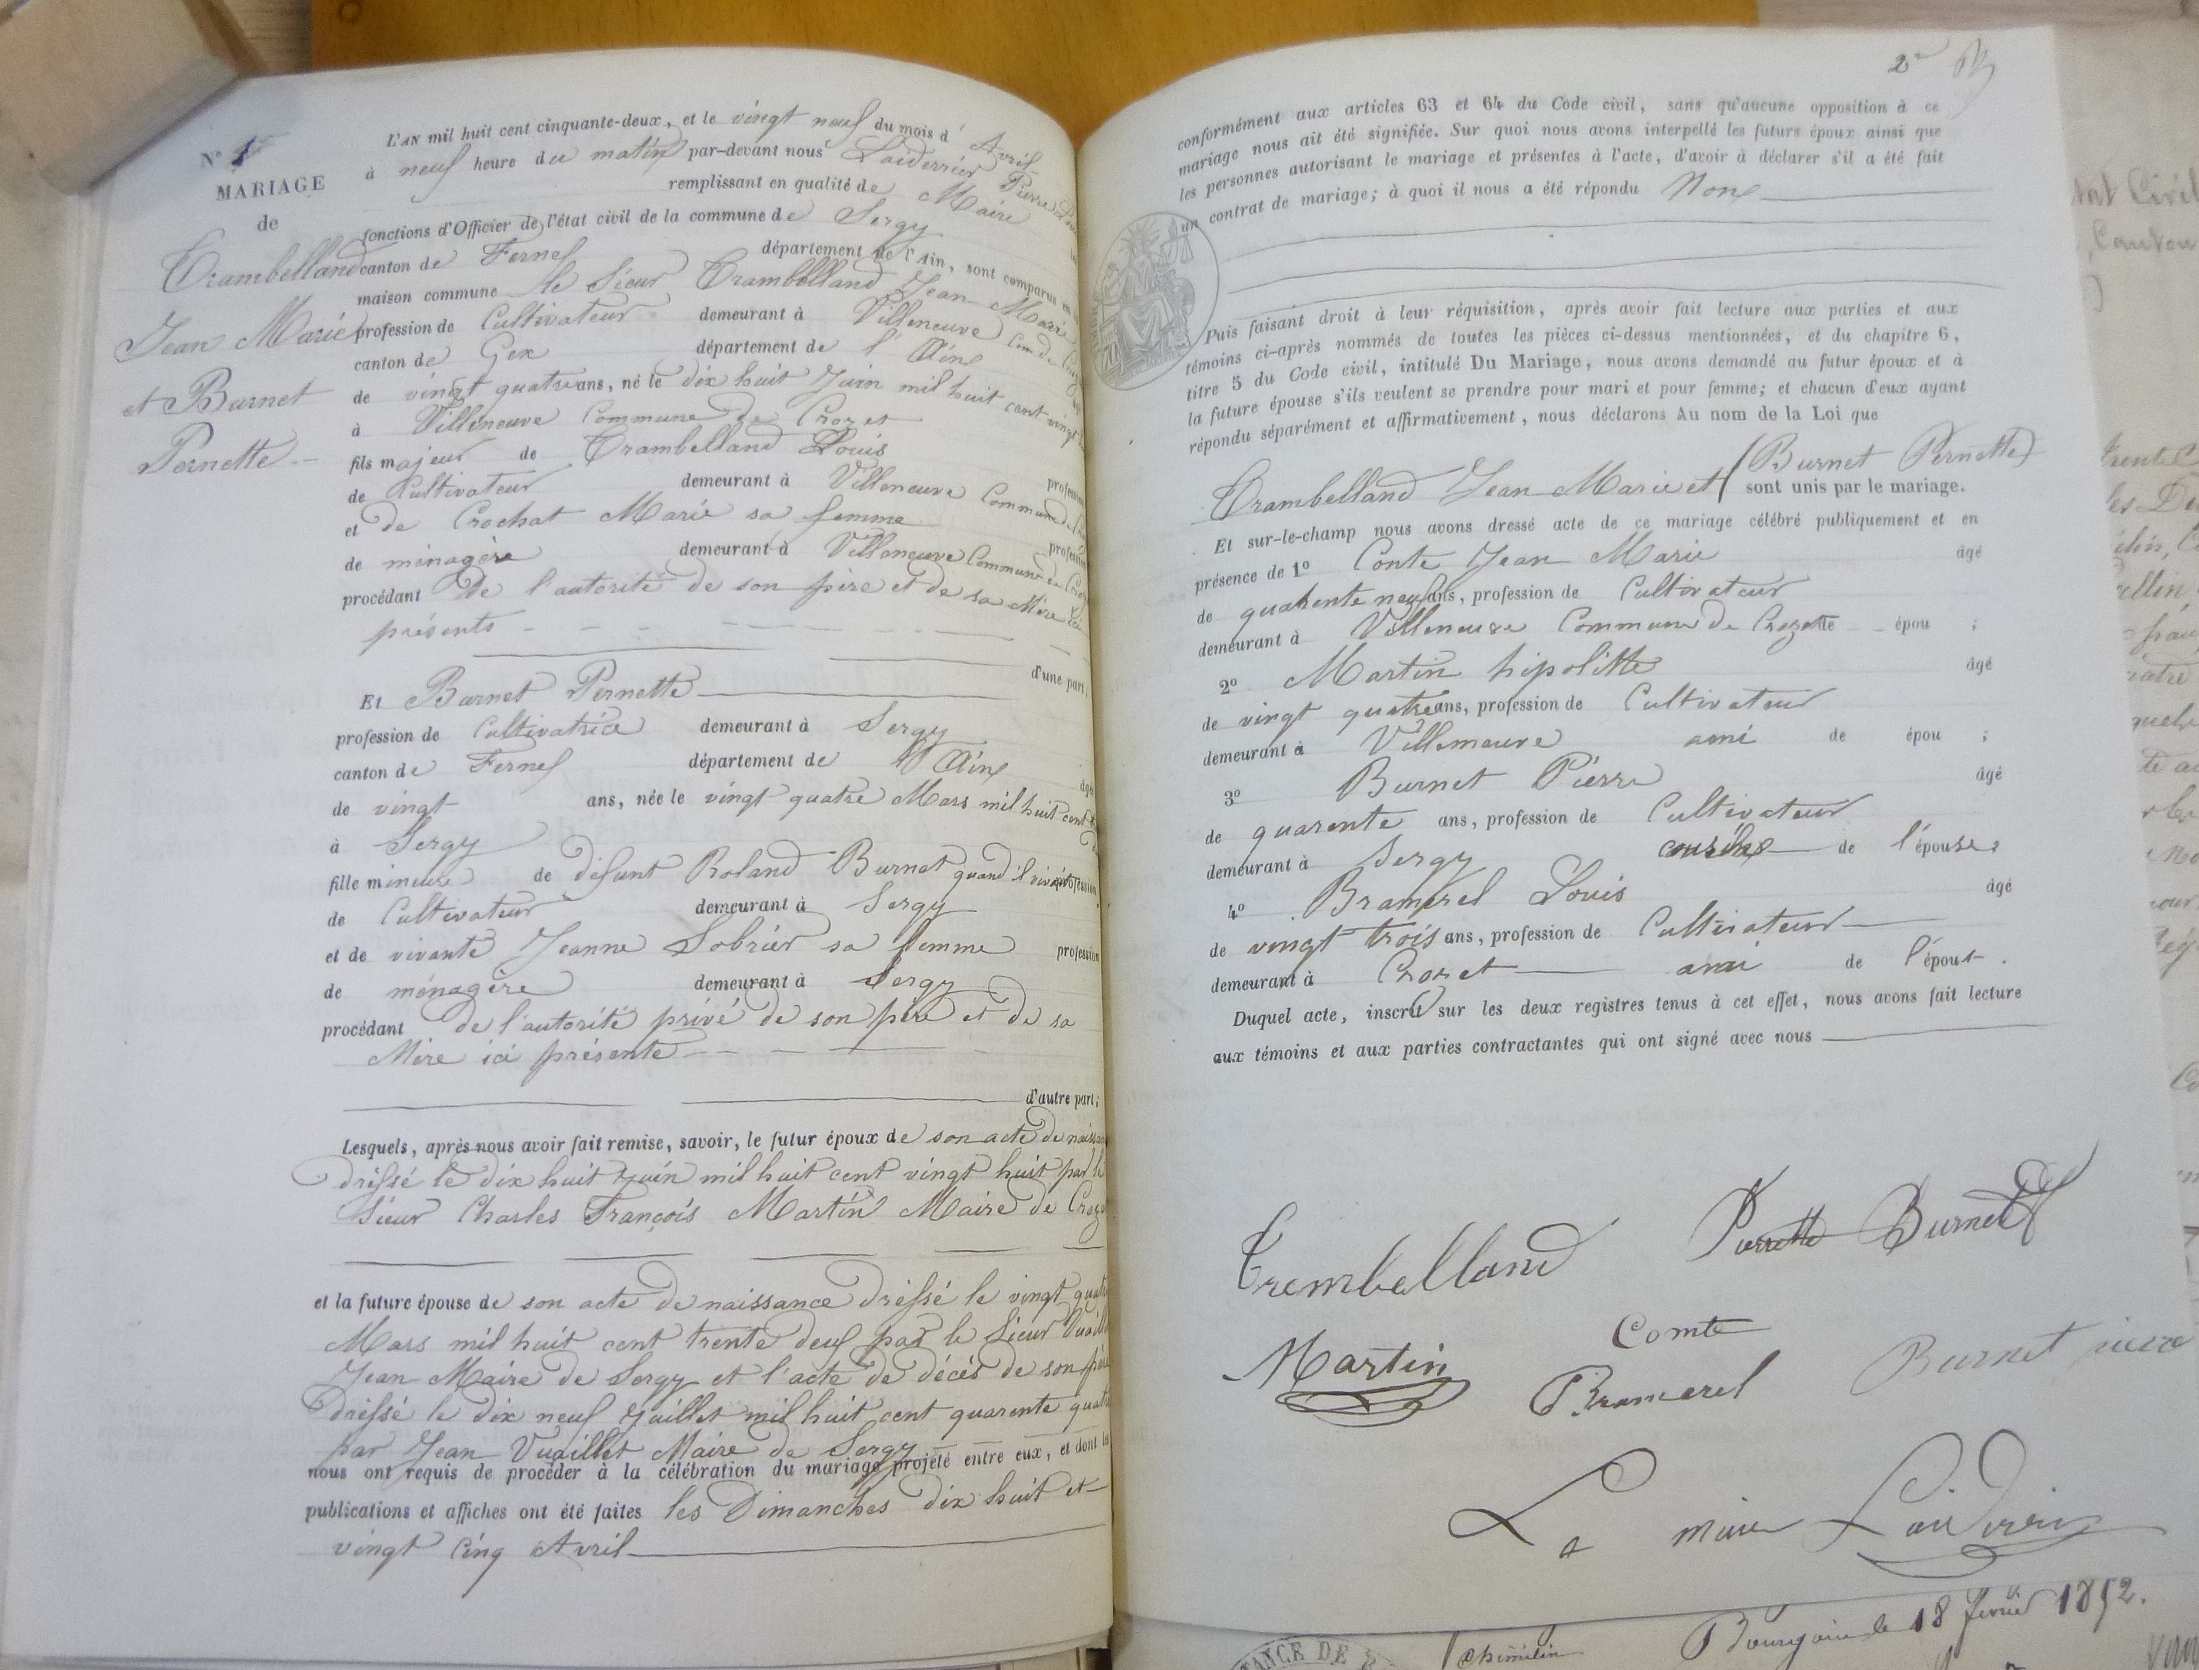 N° 1
MARIAGE
de
Trambelland
Jean Marie
et Burnet
Pernette
L'AN mil huit cent cinquante-deux, et le vingt neuf du mois d'Avril
à neuf heure du matin par-devant nous Laiderrier Pierre
remplissant en qualité de Maire
fonctions d'Officier de l'état civil de la commune de Sergy
canton de Fernex département de l'Ain, sont comparus en
maison commune le Sieur Trambelland Jean Marie
profession de Cultivateur demeurant à Villeneuve Com de
canton de Gex département de l'Ain
de vingt quatre ans, né le dix huit Juin mil huit cent vingt
à Villeneuve Commune de Crozet
fils majeur de Trambelland Louis
profession
de Cultivateur demeurant à Villeneuve Commune de
et de Crochat Marie sa femme
profession
de ménagère demeurant à Villeneuve Commune de
procédant de l'autorité de son père et de sa Mère ici
présents
d'une part,
Et Burnet Pernette
profession de Cultivatrice demeurant à Sergy
canton de Fernex département de l'Ain
âgée
de vingt ans, née le vingt quatre Mars mil huit cent
à Sergy
fille mineure de défunt Roland Burnet quand il vivait profession
de Cultivateur demeurant à Sergy
et de vivante Jeanne Sobrier sa femme profession
de ménagère demeurant à Sergy
procédant de l'autorité privé de son père et de sa
Mère ici présente
d'autre part;
Lesquels, après nous avoir fait remise, savoir, le futur époux de son acte de
dressé le dix huit Juin mil huit cent vingt huit par le
Sieur Charles François Martin Maire de
et la future épouse de son acte de naissance dressé le vingt
Mars mil huit cent trente deux par le Sieur
Jean Maire de Sergy et l'acte de décès de son père
dressé le dix neuf Juillet mil huit cent quarente
par Jean Vuaillet Maire de Sergy
nous ont requis de procéder à la célébration du mariage projeté entre eux, et dont les
publications et affiches ont été faites les Dimanches dix huit et
vingt cinq Avril
2
conformément aux articles 63 et 64 du Code civil, sans qu'aucune opposition à ce
mariage nous ait été signifiée. Sur quoi nous avons interpellé les futurs époux ainsi que
les personnes autorisant le mariage et présentes à l'acte, d'avoir à déclarer s'il a été fait
un contrat de mariage; à quoi il nous a été répondu Non
Puis faisant droit à leur réquisition, après avoir fait lecture aux parties et aux
témoins ci-après nommés de toutes les pièces ci-dessus mentionnées, et du chapitre 6,
titre 5 du Code civil, intitulé Du Mariage, nous avons demandé au futur époux et à
la future épouse s'ils veulent se prendre pour mari et pour femme; et chacun d'eux ayant
répondu séparément et affirmativement, nous déclarons Au nom de la Loi que
(Burnet Pernette)
Trambelland Jean Marie et sont unis par le mariage.
Et sur-le-champ nous avons dressé acte de ce mariage célébré publiquement et en
présence de 1° Conte Jean Marie âgé
de quarente neuf ans, profession de Cultivateur
demeurant à Villeneuve Commune de Crozette épou ;
2° Martin hipolitte âgé
de vingt quatre ans, profession de Cultivateur
demeurant à Villeneuve ami de épou ;
3° Burnet Pierre âgé
de quarente ans, profession de Cultivateur
demeurant à Sergy cousin de l'épouse;
4° Bramerel Louis âgé
de vingt trois ans, profession de Cultivateur
demeurant à Crozet ami de l'épou .
Duquel acte, inscrit sur les deux registres tenus à cet effet, nous avons fait lecture
aux témoins et aux parties contractantes qui ont signé avec nous
Trembelland Pernette Burnet
Martin Comte
Bramerel Burnet pierre
Le maire Laiderrier
Bourgoin le 18 février 1852.
chimilin
TANCE DE